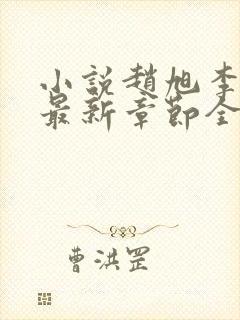 小説趙旭李
最新章節全
曹洪罡